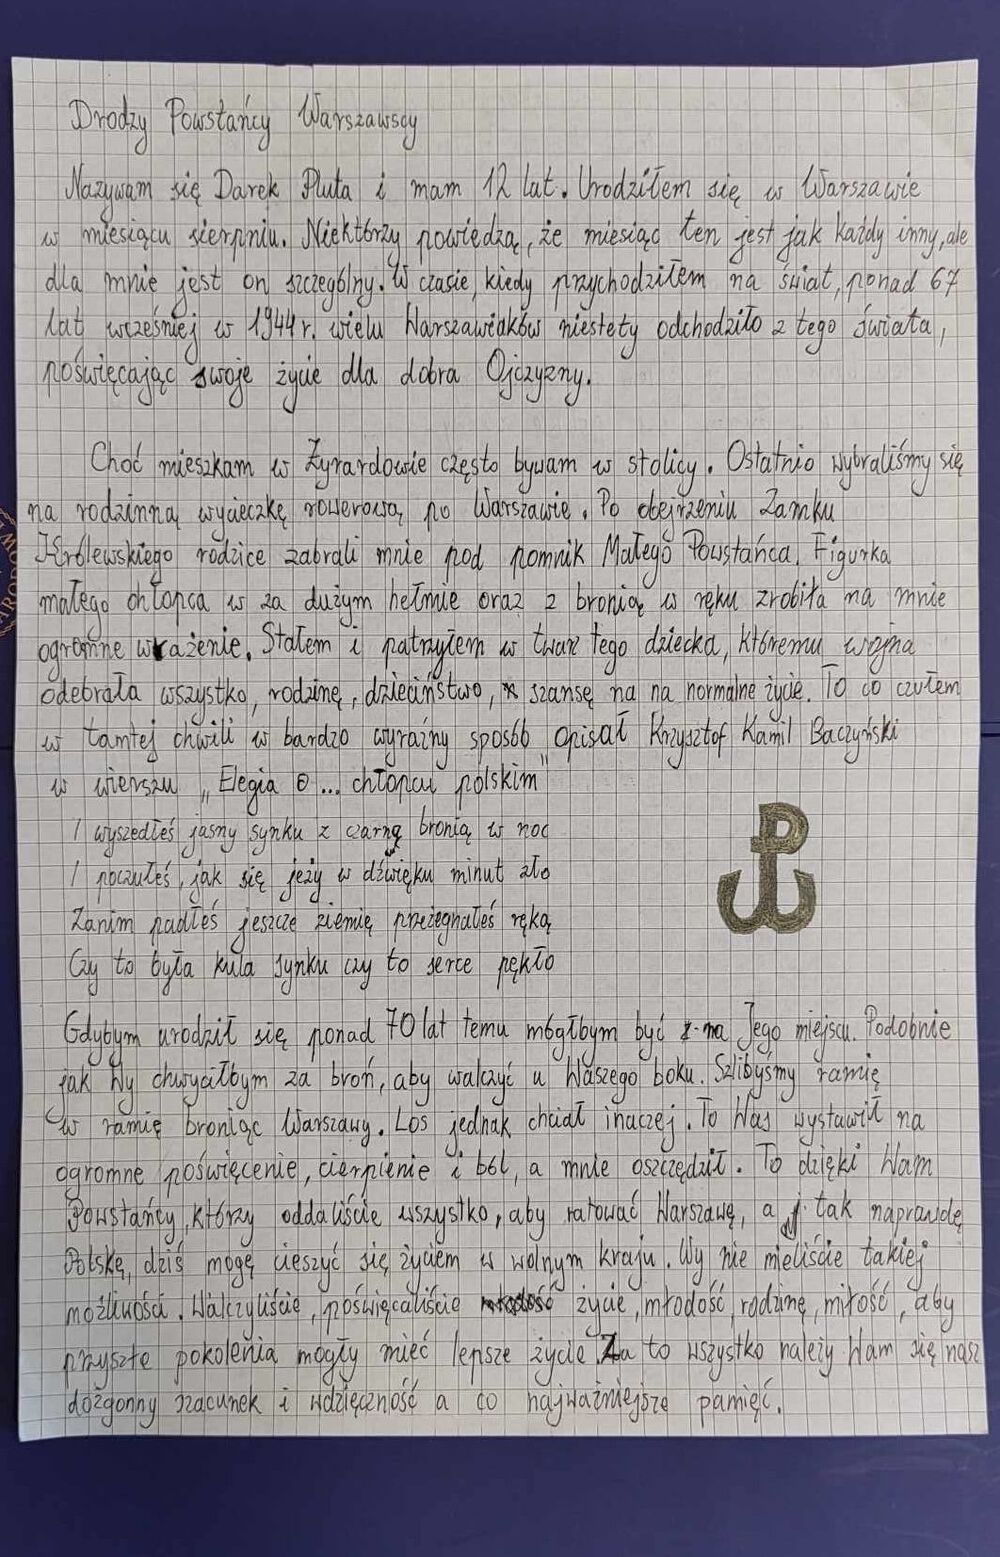 Drodzy Powstańcy Warszawscy
Nazywam się Darek Pluta i mam 12 lat. Urodziłem się w Warszawie
w miesiącu sierpniu. Niektórzy powiedzą, że miesiąc ten jest jak każdy inny, ale
dla mnie jest on szczególny. W czasie, kiedy przychodziłem na świat, ponad 67
lat wcześniej w 1944 r. wielu Warszawiaków niestety odchodziło z tego świata,
poświęcając swoje życie dla dobra Ojczyzny.
Choć mieszkam w Żyrardowie często bywam w stolicy. Ostatnio wybraliśmy się
na rodzinną wycieczkę rowerową po Warszawie. Po obejrzeniu Zamku
Królewskiego rodzice zabrali mnie pod pomnik Małego Powstańca. Figurka
małego chłopca w za dużym hełmie oraz z bronią w ręku zrobiła na mnie
ogromne wrażenie. Stałem i patrzyłem w twarz tego dziecka, któremu wojna
odebrała wszystko, rodzinę, dzieciństwo, szansę na na normalne życie. To co czułem
w tamtej chwili w bardzo wyraźny sposób opisał Krzysztof Kamil Baczyński
w wierszu „Elegia o... chłopcu polskim"
I wyszedłeś jasny synku z czarną bronią w noc
I poczułeś, jak się jeży w dźwięku minut zło
Zanim padłeś jeszcze ziemię przeżegnałeś ręką
Czy to była kula synku czy to serce pękło
Gdybym urodził się ponad 70 lat temu mógłbym być na Jego miejscu. Podobnie
jak Wy chwyciłbym za broń, aby walczyć u Waszego boku. Szlibyśmy ramię
w ramię broniąc Warszawy. Los jednak chciał inaczej. To Was wystawił na
ogromne poświęcenie, cierpienie i ból, a mnie oszczędził. To dzięki Wam
Powstańcy, którzy oddaliście wszystko, aby ratować Warszawę, a tak naprawdę
Polskę, dziś mogę cieszyć się życiem w wolnym kraju. Wy nie mieliście takiej
możliwości. Walczyliście, poświęcaliście życie, młodość, rodzinę, miłość, aby
przyszłe pokolenia mogły mieć lepsze życie. Za to wszystko należy Wam się nasz
dozgonny szacunek i wdzięczność a co najważniejsze pamięć.